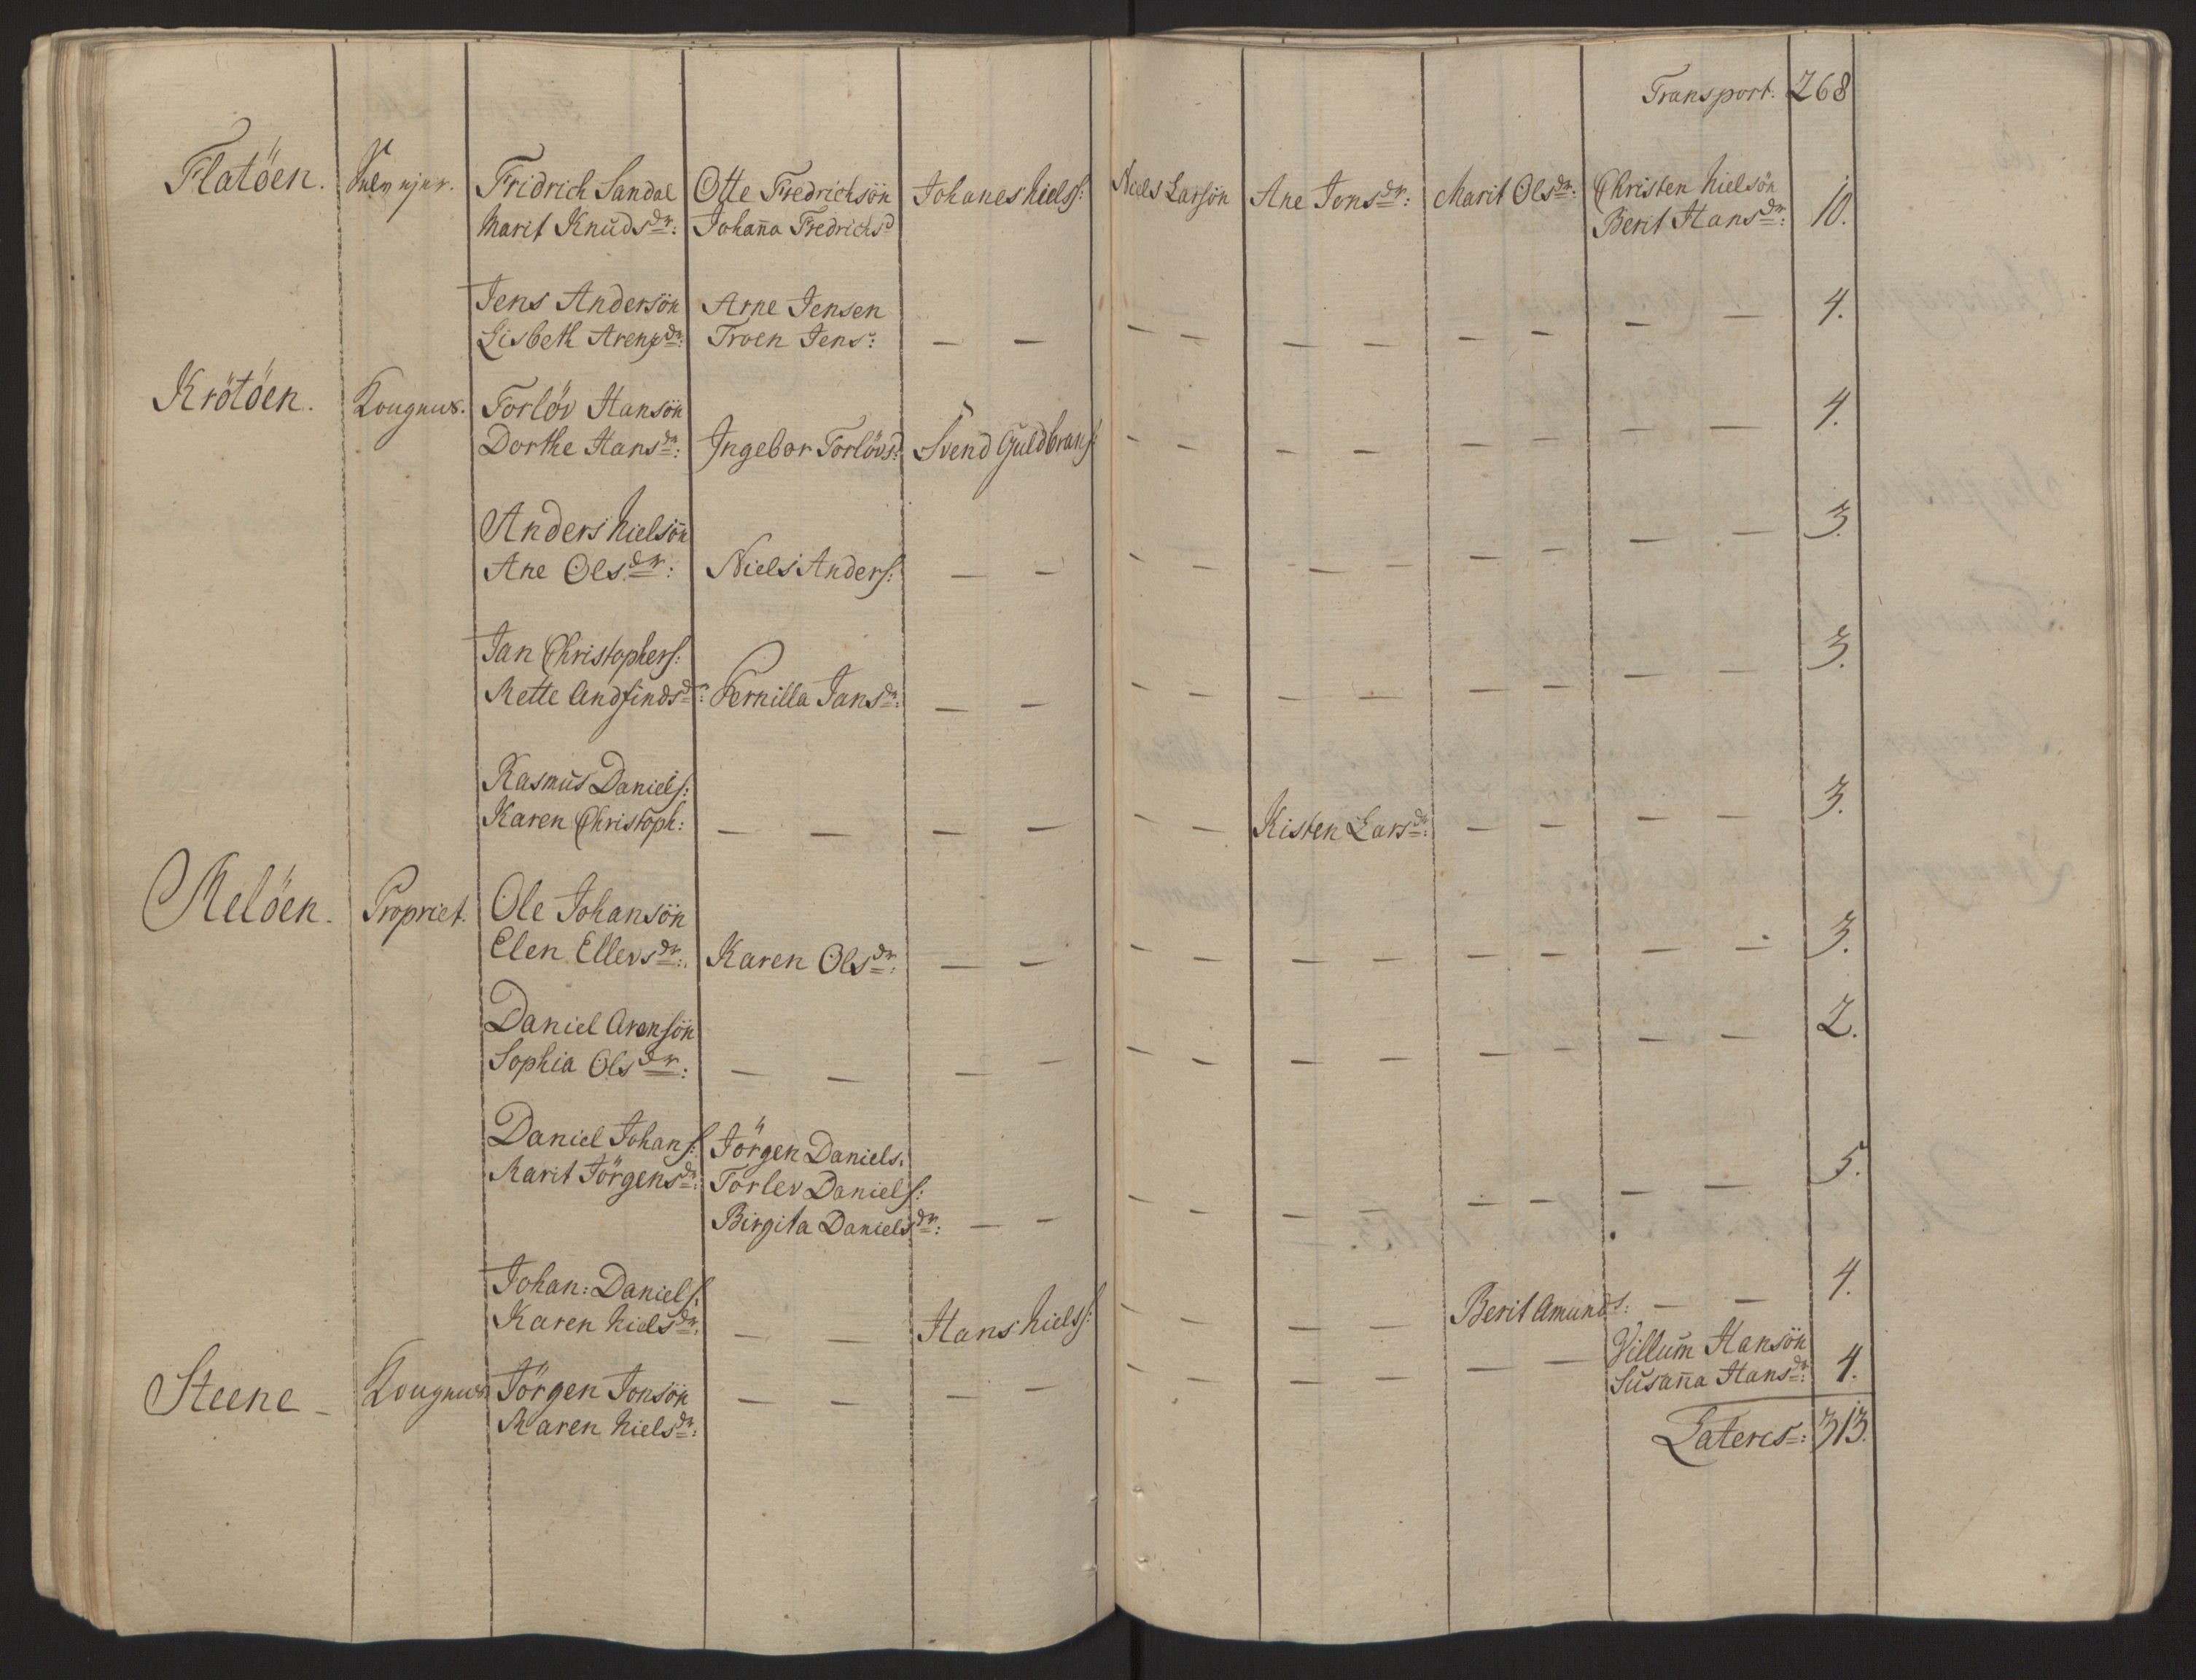 Transport. 268
Flatöen. Fridrich Sandal Otte Fredrichsön Johanes Nielss: Niels Larsön Ane Jens dr: Marit Ols dr: Christen Nielsön
Marit Knuds dr: Johaña Fredrichs d Berit Hans dr: 10.
Jens Andersön Arne Jensen 4.
Lisbeth Arens dr: Troen Jens: — — — — — — — — — —
Krötöen. Torlöv Hansön 4.
Dorthe Hans dr: Ingebor Torlövsd: Svend Guldbrans: — — — — — — — —
Anders Nielsön 3.
Ane Ols dr: Niels Anders: — — — — — — — — — —
Jan Christophers: 3.
Mette Andfinds d: Pernilla Jans dr: — — — — — — — — — —
Rasmus Daniels: 3.
Karen Christoph: — — — — — — Kisten Lars dr: — — — —
Melöen. Propriet. Ole Johansön 3.
Elen Ellevs dr: Karen Ols dr: — — — — — — — — — —
Daniel Arensön 2.
Sophia Ols dr: — — — — — — — — — — — —
Daniel Johans: Jörgen Daniels. 5.
Marit Jörgens dr: Torlev Daniels:
Birgita Daniels dr: — — — — — — — — — —
Johan: Daniels: 4.
Karen Niels dr: — — Hans Nielss: — — — — Berit Amunds: — —
Villum Hansön
Steene — Jörgen Jonsön — — — — — — — — — — Susaña Hans dr: 4.
Maren Niels dr:
Lateres: 313.